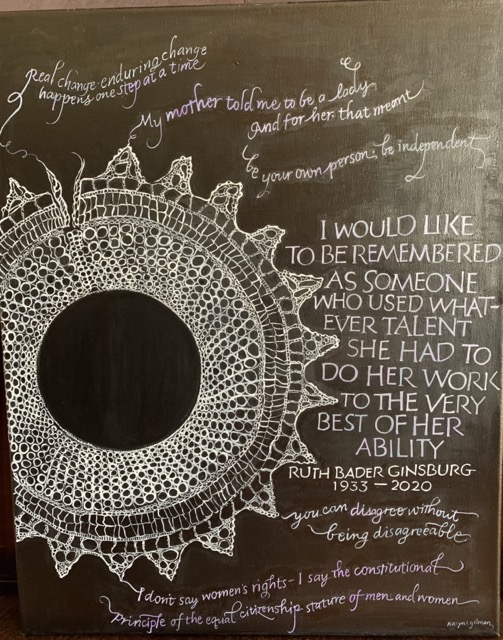 Real change, enduring change
happens one step at a time
My mother told me to be a lady
and for her, that meant
be your own person, be independent
I WOULD LIKE
TO BE REMEMBERED
AS SOMEONE
WHO USED WHAT-
EVER TALENT
SHE HAD TO
DO HER WORK
TO THE VERY
BEST OF HER
ABILITY
RUTH BADER GINSBURG
1933 — 2020
you can disagree without
being disagreeable
I don't say women's rights – I say the constitutional
principle of the equal citizenship stature of men and women